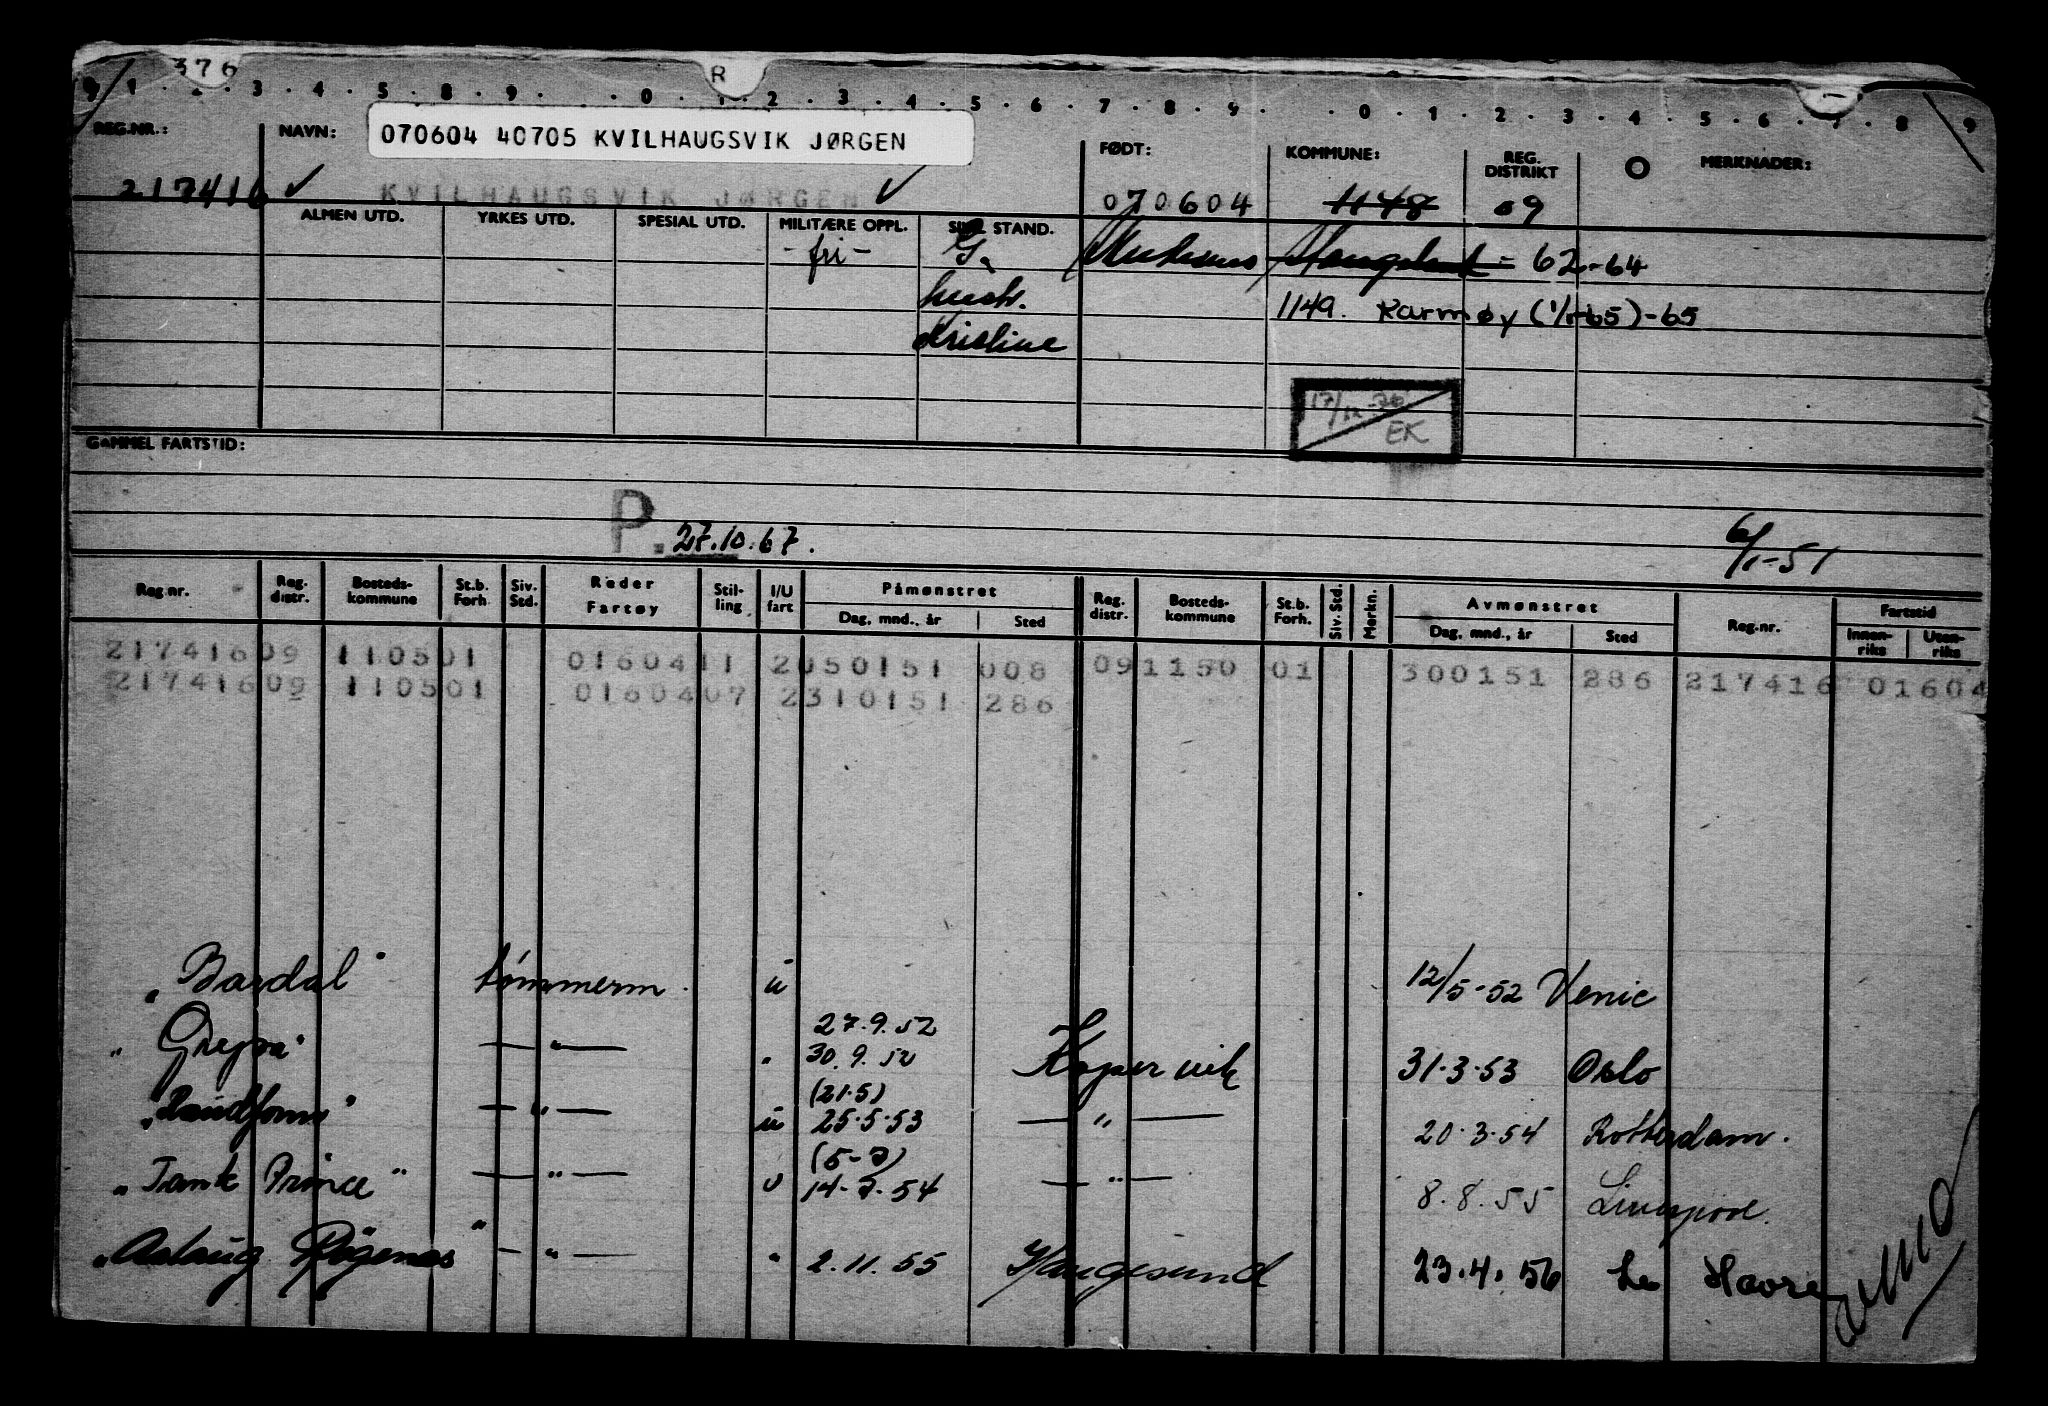 376 R
9 1 2 3 4 5 8 9 0 1 2 3 4 5 6 7 8 9 0 1 2 3 4 5 6 7 8 9
REG.NR.: NAVN: 070604 40705 KVILHAUGSVIK JØRGEN FØDT: KOMMUNE: REG. DISTRIKT O MERKNADER:
217416 ✓ KVILHAUGSVIK JØRGEN ✓ 070604 1148 09
ALMEN UTD. YRKES UTD. SPESIAL UTD. MILITÆRE OPPL. SIVIL STAND.
-fri- G. 62-64
hustr. 1149. Karmøy (1/1-65)-65
Kristine
17/12-76
EK
GAMMEL FARTSTID:
P. 27.10.67.
6/1-51
Reg.nr. Reg. distr. Bosteds-kommune St.b. Forh. Siv. Std. Reder Fartøy Stil-ling I/U fart Påmønstret Reg. distr. Bosteds-kommune St.b. Forh. Siv. Std. Merkn. Avmønstret Reg.nr. Fartstid
Dag, mnd., år Sted Dag, mnd., år Sted Innen-riks Uten-riks
21741609 110501 0160411 2050151 008 091150 01 300151 286 217416 01604
21741609 110501 0160407 2310151 286
"Bardal" tømmerm. u 12/5-52 Venic
27.9.52
"Grepa" — " — " 30.9.52 Kopervik 31.3.53 Oslo
(21.5)
— " — u 25.5.53 — " — 20.3.54 Rotterdam.
(5-7)
"Tank Prince" — " — u 14-7-54 — " — 8.8.55 Liverpool.
"Aslaug Røgenæs" — " — " 2.11.55 Haugesund 23.4.56 Le Havre